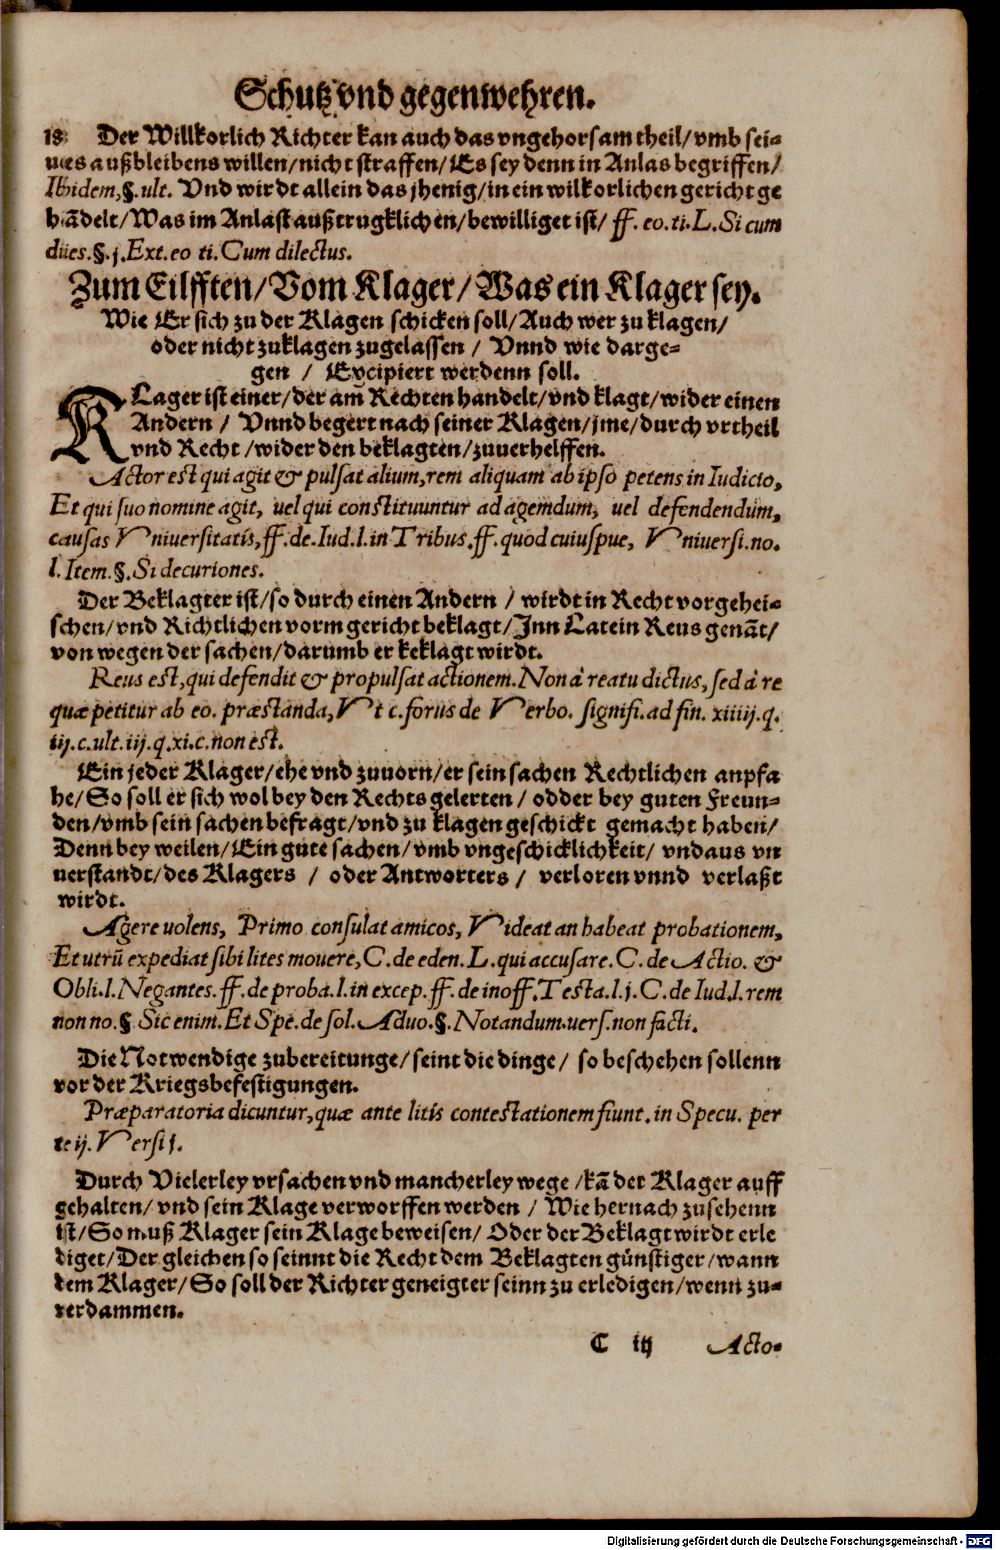 Schutz vnd gegenwehren.
18. Der Willkorlich Richter kan auch das vngehorsam theil/vmb sei-
nes außbleibens willen/nicht straffen/Es sey denn in Anlas begriffen/
Ibidem,§.ult. Vnd wirdt allein das jhenig/in ein wilkorlichen gericht ge
hãdelt/Was im Anlast außtrugklichen/bewilliget ist/ ff. eo.ti.L.Si cum
dies.§.j.Ext.eo ti.Cum dilectus.
Zum Eilfften/Vom Klager/Was ein Klager sey.
Wie Er sich zu der Klagen schicken soll/Auch wer zu klagen/
oder nicht zuklagen zugelassen / Vnnd wie darge-
gen / Excipiert werdenn soll.
KLager ist einer/der am̃ Rechten handelt/vnd klagt/wider einen
Andern / Vnnd begert nach seiner Klagen/jme/durch vrtheil
vnd Recht/wider den beklagten/zuuerhelffen.
Actor est qui agit & pulsat alium,rem aliquam ab ipso petens in Iudicio,
Et qui suo nomine agit, uel qui constituuntur ad agemdum, uel defendendum,
causas Vniuersitatis,ff.de.Iud.l.in Tribus.ff.quod cuiuspue, Vniuersi.no.
l.Item.§.Si decuriones.
Der Beklagter ist/so durch einen Andern / wirdt in Recht vorgehei-
schen/vnd Richtlichen vorm gericht beklagt/Inn Latein Reus genãt/
von wegen der sachen/darumb er keklagt wirdt.
Reus est,qui defendit & propulsat actionem.Non à reatu dictus,sed à re
quæ petitur ab eo. præstanda,Vt c.forus de Verbo. signifi.ad fin. xiiij.q.
iij.c.ult.iij.q.xi.c.non est.
Ein jeder Klager/ehe vnd zuuorn/er sein sachen Rechtlichen anpfa
he/So soll er sich wol bey den Rechts gelerten / odder bey guten Freun-
den/vmb sein sachen befragt/vnd zu klagen geschickt gemacht haben/
Denn bey weilen/Ein gute sachen/vmb vngeschicklichkeit/ vndaus vn
uerstandt/des Klagers / oder Antworters / verloren vnnd verlaßt
wirdt.
Agere uolens, Primo consulat amicos, Videat an habeat probationem,
Et utrũ expediat sibi lites mouere,C.de eden.L.qui accusare.C.de Actio. &
Obli.l.Negantes.ff.de proba.l.in excep.ff.de inoff.Testa.l.j.C.de Iud.l.rem
non no.§ Sic enim.Et Spe.de sol.Aduo.§.Notandum.uers.non facti.
Die Notwendige zubereitunge/seint die dinge/ so beschehen sollenn
vor der Kriegsbefestigungen.
Præparatoria dicuntur,quæ ante litis contestationem fiunt.in Specu. per
te ij.Versi j.
Durch Vielerley vrsachen vnd mancherley wege/kã der Klager auff
gehalten/vnd sein Klage verworffen werden / Wie hernach zusehenn
ist/So muß Klager sein Klage beweisen/ Oder der Beklagt wirdt erle
diget/Der gleichen so seinnt die Recht dem Beklagten günstiger/wann
dem Klager/So soll der Richter geneigter seinn zu erledigen/wenn zu-
verdammen.
C iij Acto-
Digitalisierung gefördert durch die Deutsche Forschungsgemeinschaft - DFG